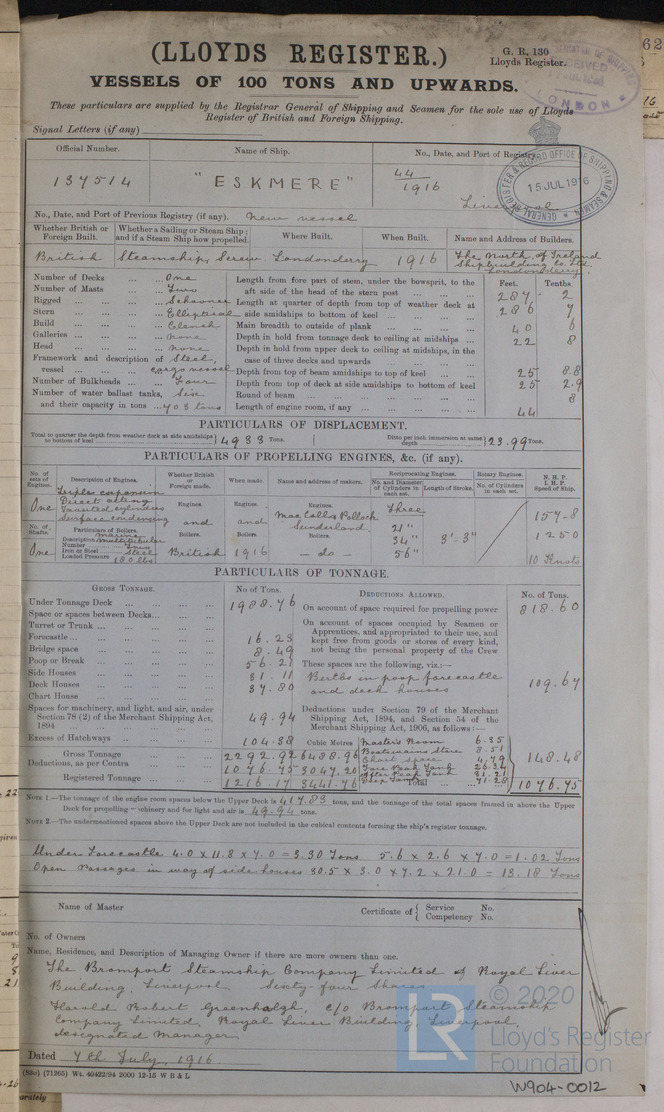 (LLOYDS REGISTER.)
G. R. 130
Lloyds Register.
VESSELS OF 100 TONS AND UPWARDS.
These particulars are supplied by the Registrar General of Shipping and Seamen for the sole use of Lloyds
Register of British and Foreign Shipping.
Signal Letters (if any)
Official Number. Name of Ship. No., Date, and Port of Registry.
137514 "ESKMERE" 44
1916
Liverpool
REGISTER & RECORD OFFICE OF SHIPPING & SEAMEN
15 JUL 1916
GENERAL
LONDON
No., Date, and Port of Previous Registry (if any). New vessel
Whether British or Foreign Built. Whether a Sailing or Steam Ship; and if a Steam Ship how propelled. Where Built. When Built. Name and Address of Builders.
British Steamship, Screw Londonderry 1916 The North of Ireland
Shipbuilding Co. Ltd.
Londonderry.
Number of Decks One
Number of Masts Two
Rigged Schooner
Stern Elliptical
Build Clench
Galleries None
Head None
Framework and description of vessel Steel, cargo vessel
Number of Bulkheads Four
Number of water ballast tanks, Six
and their capacity in tons 403 tons
Feet. Tenths.
Length from fore part of stem, under the bowsprit, to the
aft side of the head of the stern post 287 2
Length at quarter of depth from top of weather deck at
side amidships to bottom of keel 286 7
Main breadth to outside of plank 40 6
Depth in hold from tonnage deck to ceiling at midships 22 8
Depth in hold from upper deck to ceiling at midships, in the
case of three decks and upwards
Depth from top of beam amidships to top of keel 25 8.8
Depth from top of deck at side amidships to bottom of keel 25 2.9
Round of beam 8
Length of engine room, if any 44
PARTICULARS OF DISPLACEMENT.
Total to quarter the depth from weather deck at side amidships to bottom of keel 4933 Tons.
Ditto per inch immersion at same depth 23.99 Tons.
PARTICULARS OF PROPELLING ENGINES, &c. (if any).
No. of sets of Engines. Description of Engines. Whether British or Foreign made. When made. Name and address of makers.
Reciprocating Engines. No. and Diameter of Cylinders in each set. Length of Stroke.
Rotary Engines. No. of Cylinders in each set.
N. H. P.
I. H. P.
Speed of Ship.
One
Triple expansion
Direct acting
Inverted cylinders
Surface condensing
Engines. Engines. Engines.
and and
MacColl & Pollock
Sunderland.
Three
21"
34"
56"
3'-3"
157.8
1250
10 Knots
No. of Shafts. One
Particulars of Boilers. Boilers. Boilers. Boilers.
Description Marine Multitubular
Number Two
Iron or Steel Steel
Loaded Pressure 180 lbs
British 1916 - do -
PARTICULARS OF TONNAGE.
GROSS TONNAGE. No of Tons.
Under Tonnage Deck 1988.76
Space or spaces between Decks
Turret or Trunk
Forecastle 16.23
Bridge space 8.49
Poop or Break 56.21
Side Houses 31.11
Deck Houses 37.80
Chart House
Spaces for machinery, and light, and air, under
Section 78 (2) of the Merchant Shipping Act,
1894 49.94
Excess of Hatchways 104.38
Cubic Metres
Gross Tonnage 2292.92 6488.96
Deductions, as per Contra 1076.75 3047.20
Registered Tonnage 1216.17 3441.76
DEDUCTIONS ALLOWED. No. of Tons.
On account of space required for propelling power 818.60
On account of spaces occupied by Seamen or
Apprentices, and appropriated to their use, and
kept free from goods or stores of every kind,
not being the personal property of the Crew
These spaces are the following, viz.:—
Berths in poop forecastle
and deck houses 109.67
Deductions under Section 79 of the Merchant
Shipping Act, 1894, and Section 54 of the
Merchant Shipping Act, 1906, as follows:—
Master's Room 6.35
Boatswains Store 8.51
Chart space 4.79
Fore Peak Tank 26.34
After Peak Tank 31.21
71.28
148.48
Total 1076.75
NOTE 1.—The tonnage of the engine room spaces below the Upper Deck is 417.83 tons, and the tonnage of the total spaces framed in above the Upper
Deck for propelling machinery and for light and air is 49.94 tons.
NOTE 2.—The undermentioned spaces above the Upper Deck are not included in the cubical contents forming the ship's register tonnage.
Under Forecastle 4.0 x 11.8 x 7.0 = 3.30 Tons 5.6 x 2.6 x 7.0 = 1.02 Tons
Open Passages in way of side houses 30.5 x 3.0 x 7.2 x 21.0 = 13.18 Tons
Name of Master
Certificate of { Service No.
Competency No.
No. of Owners
Name, Residence, and Description of Managing Owner if there are more owners than one.
The Bromport Steamship Company Limited of Royal Liver
Building, Liverpool. Sixty four Shares
Harold Robert Greenhalgh, c/o Bromport Steamship
Company Limited, Royal Liver Building, Liverpool,
designated Manager
Dated 7th July, 1916
(83c) (71265) Wt. 40422/94 2000 12-15 W B & L
LR
© 2020
Lloyd's Register
Foundation
W904-0012